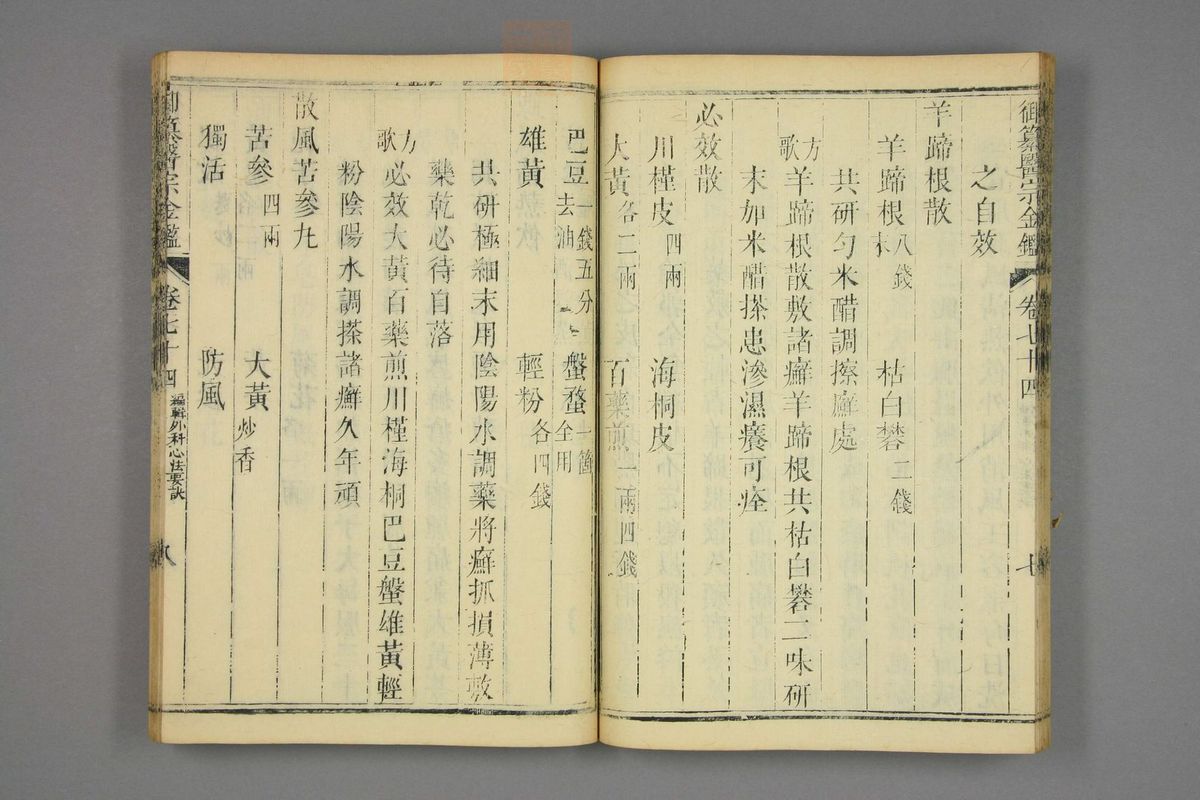 御纂醫宗金鑑 卷七十四 七
之自效
羊蹄根散
羊蹄根末八錢 枯白礬二錢
共研勻米醋調擦癬處
方歌 羊蹄根散敷諸癬羊蹄根共枯白礬二味研
末加米醋搽患滲濕癢可痊
必效散
川槿皮四兩 海桐皮
大黃各二兩 百藥煎一兩四錢
巴豆一錢五分去油 蟹蝥一箇全用
雄黃 輕粉各四錢
共研極細末用陰陽水調藥將癬抓損薄敷
藥乾必待自落
方歌 必效大黃百藥煎川槿海桐巴豆蟹雄黃輕
粉陰陽水調搽諸癬久年頑
散風苦參丸
苦參四兩 大黃炒香
獨活 防風
御纂醫宗金鑑 卷七十四 編輯外科心法要訣 八